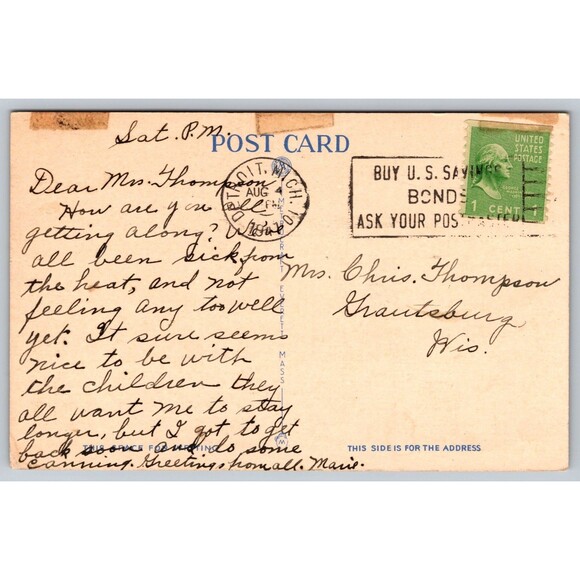 Sat. P.M.
POST CARD
Dear Mrs. Thompson
How are you all
getting along? We
all been sick from
the heat, and not
feeling any too well
yet. It sure seems
nice to be with
the children they
all want me to stay
longer, but I got to get
back soon and do some
canning. Greetings from all. Marie.
THIS SPACE FOR WRITING
DETROIT, MICH.
AUG 4
BUY U.S. SAVINGS
BONDS
ASK YOUR POSTMASTER
UNITED
STATES
POSTAGE
1 CENT 1
Mrs. Chris. Thompson
Grantsburg
Wis.
THIS SIDE IS FOR THE ADDRESS